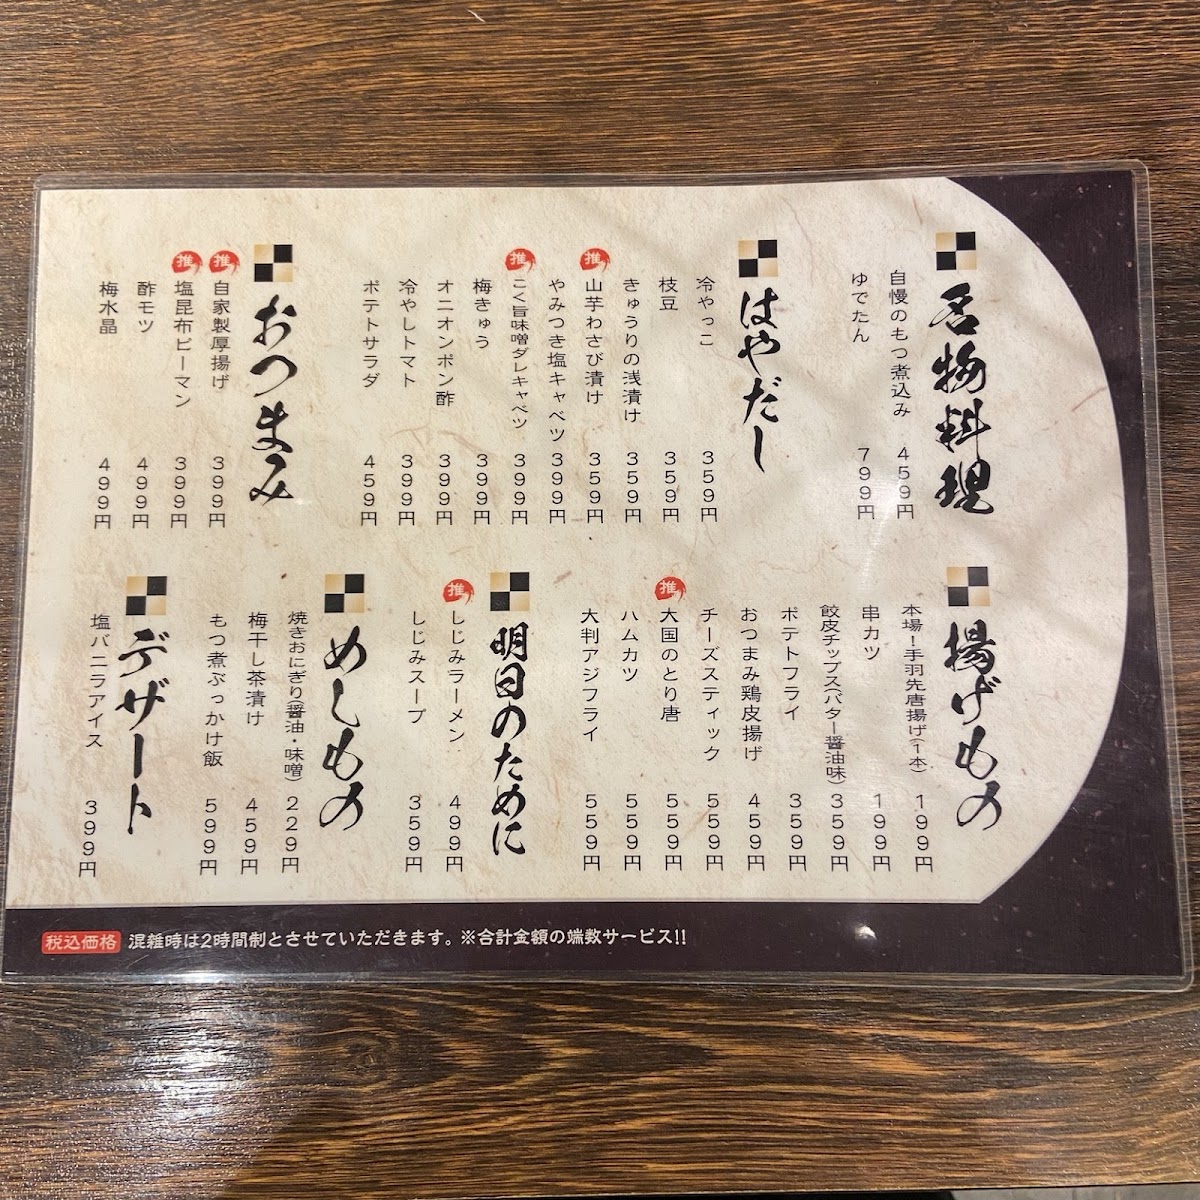 名物料理
自慢のもつ煮込み 459円
ゆでたん 799円
はやだし
冷やっこ 359円
枝豆 359円
きゅうりの浅漬け 359円
推 山芋わさび漬け 359円
やみつき塩キャベツ 399円
推 こく旨味噌ダレキャベツ 399円
梅きゅう 399円
オニオンポン酢 399円
冷やしトマト 399円
ポテトサラダ 459円
おつまみ
推 自家製厚揚げ 399円
推 塩昆布ピーマン 399円
酢モツ 499円
梅水晶 499円
揚げもの
本場!手羽先唐揚げ(1本) 199円
串カツ 199円
餃皮チップス(バター醤油味) 359円
ポテトフライ 359円
おつまみ鶏皮揚げ 459円
チーズスティック 559円
推 大国のとり唐 559円
ハムカツ 559円
大判アジフライ 559円
明日のために
推 しじみラーメン 499円
しじみスープ 359円
めしもの
焼きおにぎり(醤油・味噌) 229円
梅干し茶漬け 459円
もつ煮ぶっかけ飯 599円
デザート
塩バニラアイス 399円
税込価格 混雑時は2時間制とさせていただきます。※合計金額の端数サービス!!